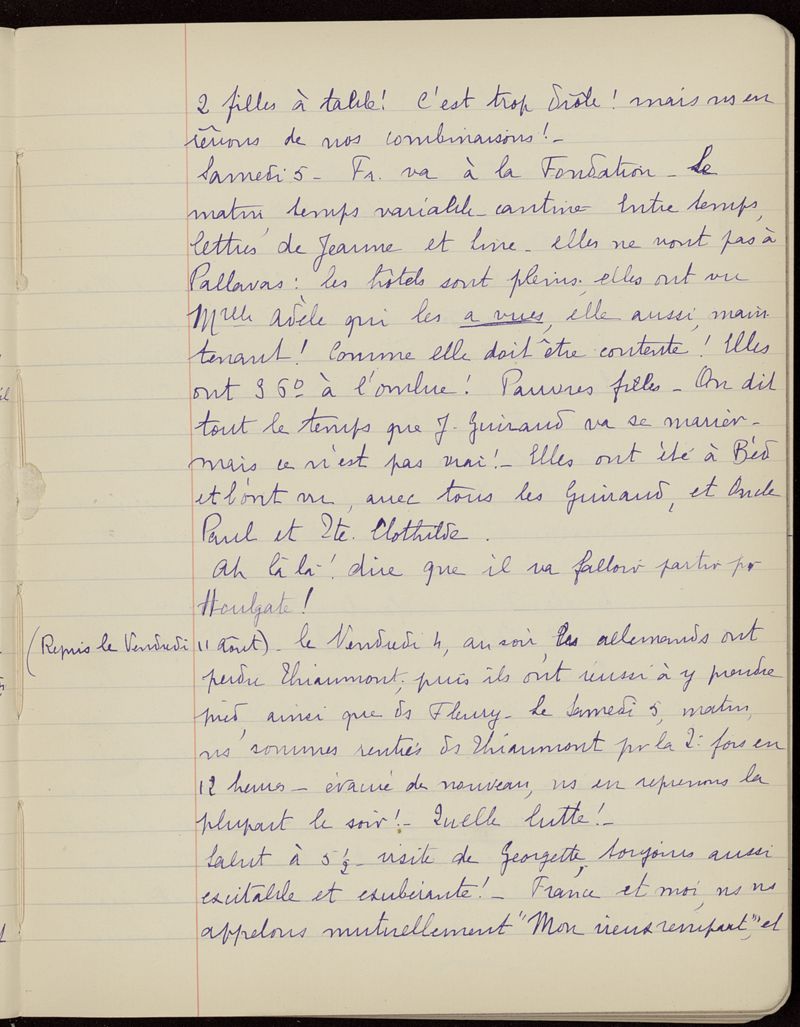 2 filles à table! C'est trop drôle! mais ns en
rêvons de nos combinaisons! -
Samedi 5 - Fr. va à la Fondation - Le
matin, temps variable - cantine - Entre temps,
lettres de Jeanne et Line - elles ne vont pas à
Pallavas: les hôtels sont pleins; elles ont vu
Melle Adèle qui les a vues, elle aussi, main
tenant! Comme elle doit être contente! Elles
ont 36° à l'ombre! Pauvres filles - On dit
tout le temps que J. Guiraud va se marier -
mais ce n'est pas vrai! - Elles ont été à Béd
et l'ont vu, avec tous les Guiraud, et Oncle
Paul et Tte. Clothilde.
Ah là là! dire que il va falloir partir pr
Houlgate!
(Repris le Vendredi 11 août) - le Vendredi 4, au soir, les allemands ont
perdu Thiaumont; puis ils ont réussi à y prendre
pied, ainsi que ds Fleury - Le Samedi 5, matin,
ns sommes rentrés ds Thiaumont pr la 2e fois en
12 heures - évacué de nouveau, ns en reprenons la
plupart le soir! - Quelle lutte! -
Salut à 5 1/2 - visite de Georgette, toujours aussi
excitable et exubérante! - France et moi, ns ns
appelons mutuellement "Mon vieux rempart", et